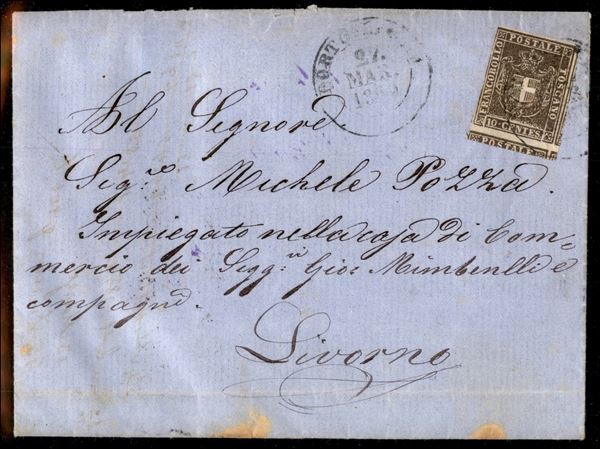 27
MAR.
FRANCOBOLLO
POSTALE
TOSCANO
10 CENTES
POSTALE
Al Signore
Sig.re Michele Pozza.
Impiegato nella casa di Com=
mercio dei Sigg.ri Gio: Mimbelli e
compagni.
Livorno